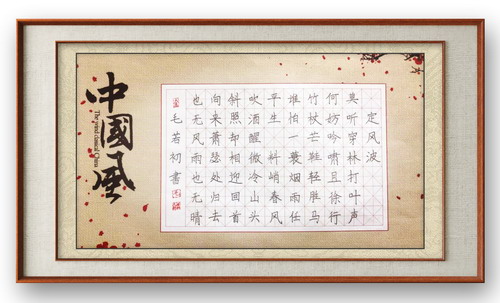 定风波
莫听穿林打叶声
何妨吟啸且徐行
竹杖芒鞋轻胜马
谁怕一蓑烟雨任
平生 料峭春风
吹酒醒微冷山头
斜照却相迎回首
向来萧瑟处归去
也无风雨也无晴
毛若初書
中國風
The grand classical China